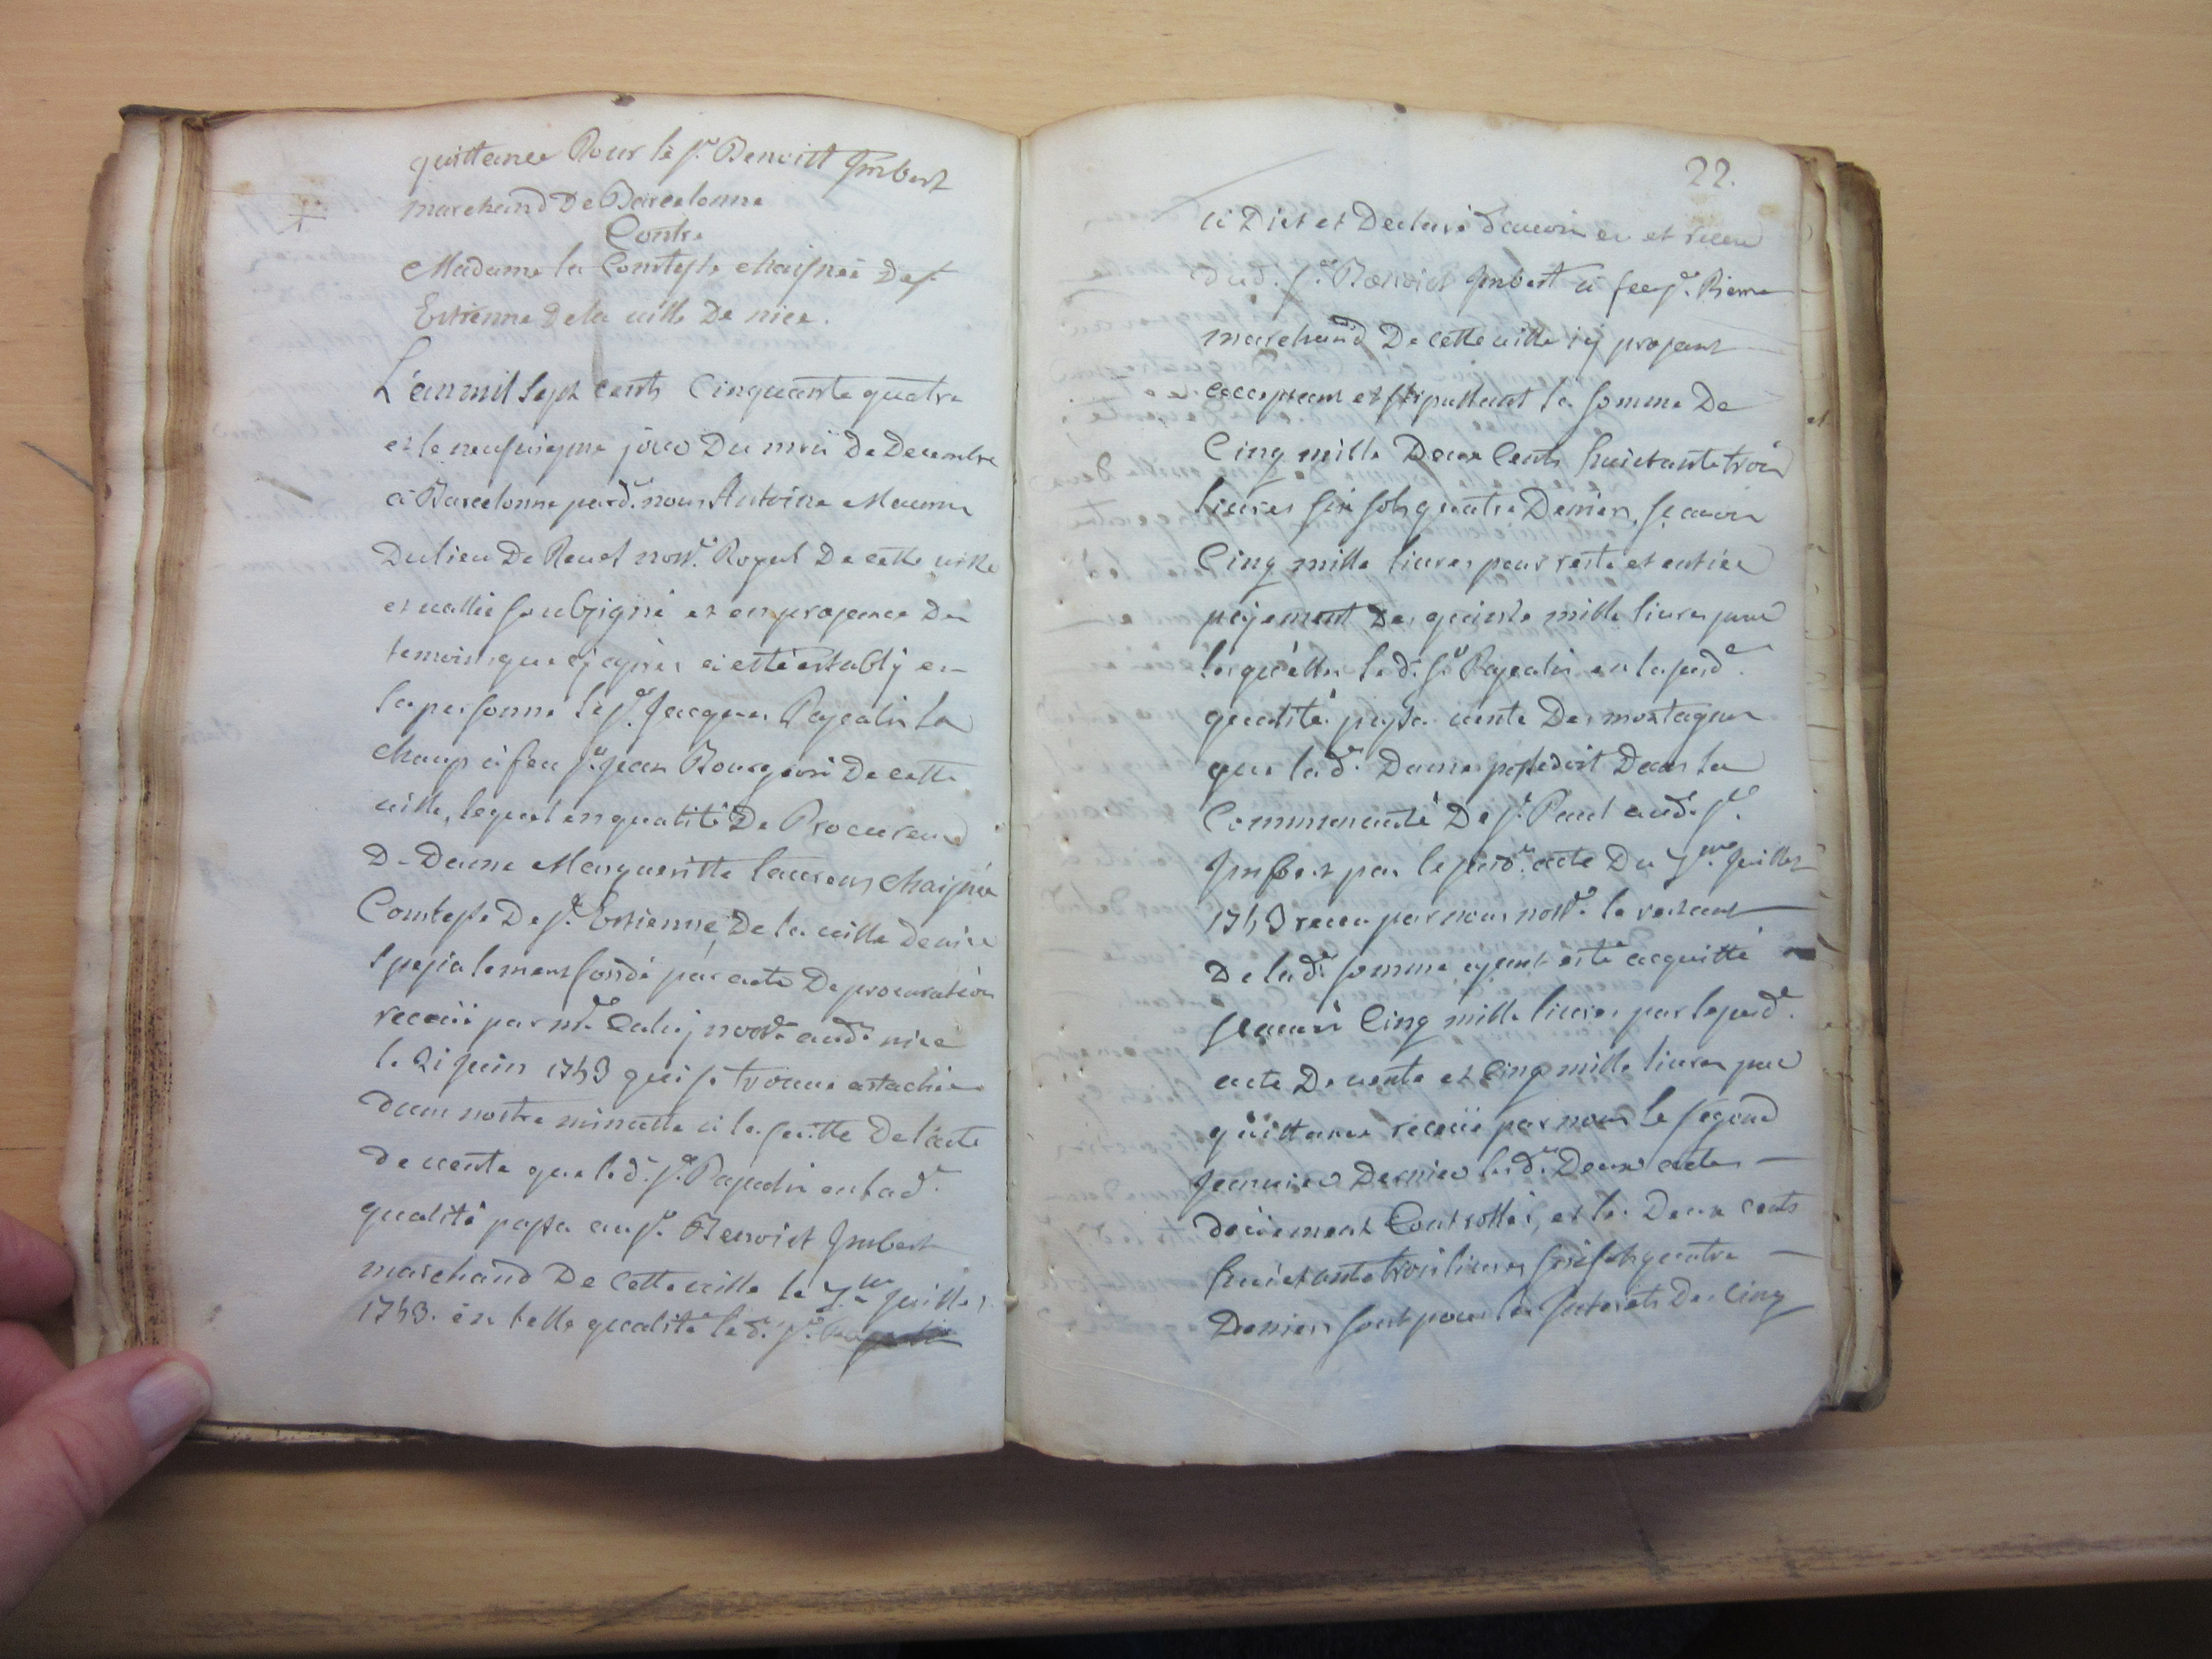 quittance Pour le sr. Benoitt Imbert
marchand De Barcelonne
Contre
Madame la Comtesse chaisnée De st.
Estienne De la ville De nice.
L'an mil sept cents Cinquante quatre
et le neufuiesme jour Du mois De Decembre
à Barcelonne pard. nous Antoine Maurin
Du lieu De Revel nore. Royal De cette ville
et vallée soubsigné et en presence Des
temoins que cj apres a esté estably en
la personne le sr. Jacques Pascalis La
chaup à feu sr. Jean Bourgeois De cette
ville, lequel en qualité De Procureur
De Dame Margueritte laurens chaisnée
Comtesse De st. Estienne, De la ville De nice
spesialement fondé par acte De procuration
receüe par me. nore. aud. nice
le 21 juin 1743 qui se trouve attachée
Dans nostre minutte à la suitte De l'acte
De vente que led. sr. Pascalis en lad.
qualité passa au sr. Benoist Imbert
marchand De cette ville le 7me juillet
1743. en telle qualité led. sr.
22.
a Dict et Declaré d'avoir eu et receu
dud. sr. Benoist Imbert à feu sr. Pierre
marchand De cette ville icy present
acceptant et stipullant la somme De
Cinq mille Deux Cents huictante trois
livres six sols quatre Deniers, sçavoir
Cinq mille livres pour reste et entier
payement Des quinze mille livres pour
lesquelles led. sr. Pascalis en la susd.
qualité passa vente Des montagnes
que lad. Dame possedoit Dans la
Communauté De st. Paul aud. sr.
Imbert par le susd. acte Du 7me Juillet
1743 receu par nous nore. le restant
De lad. somme ayant esté acquitté
sçavoir Cinq mille livres par le susd.
acte De vente et Cinq mille livres par
quittance receüe par nous le segond
Janvier Dernier lesd. Deux actes
deüement Controllés, et les Deux cents
huictante trois livres six sols quatre
Deniers sont pour les Interets Des Cinq